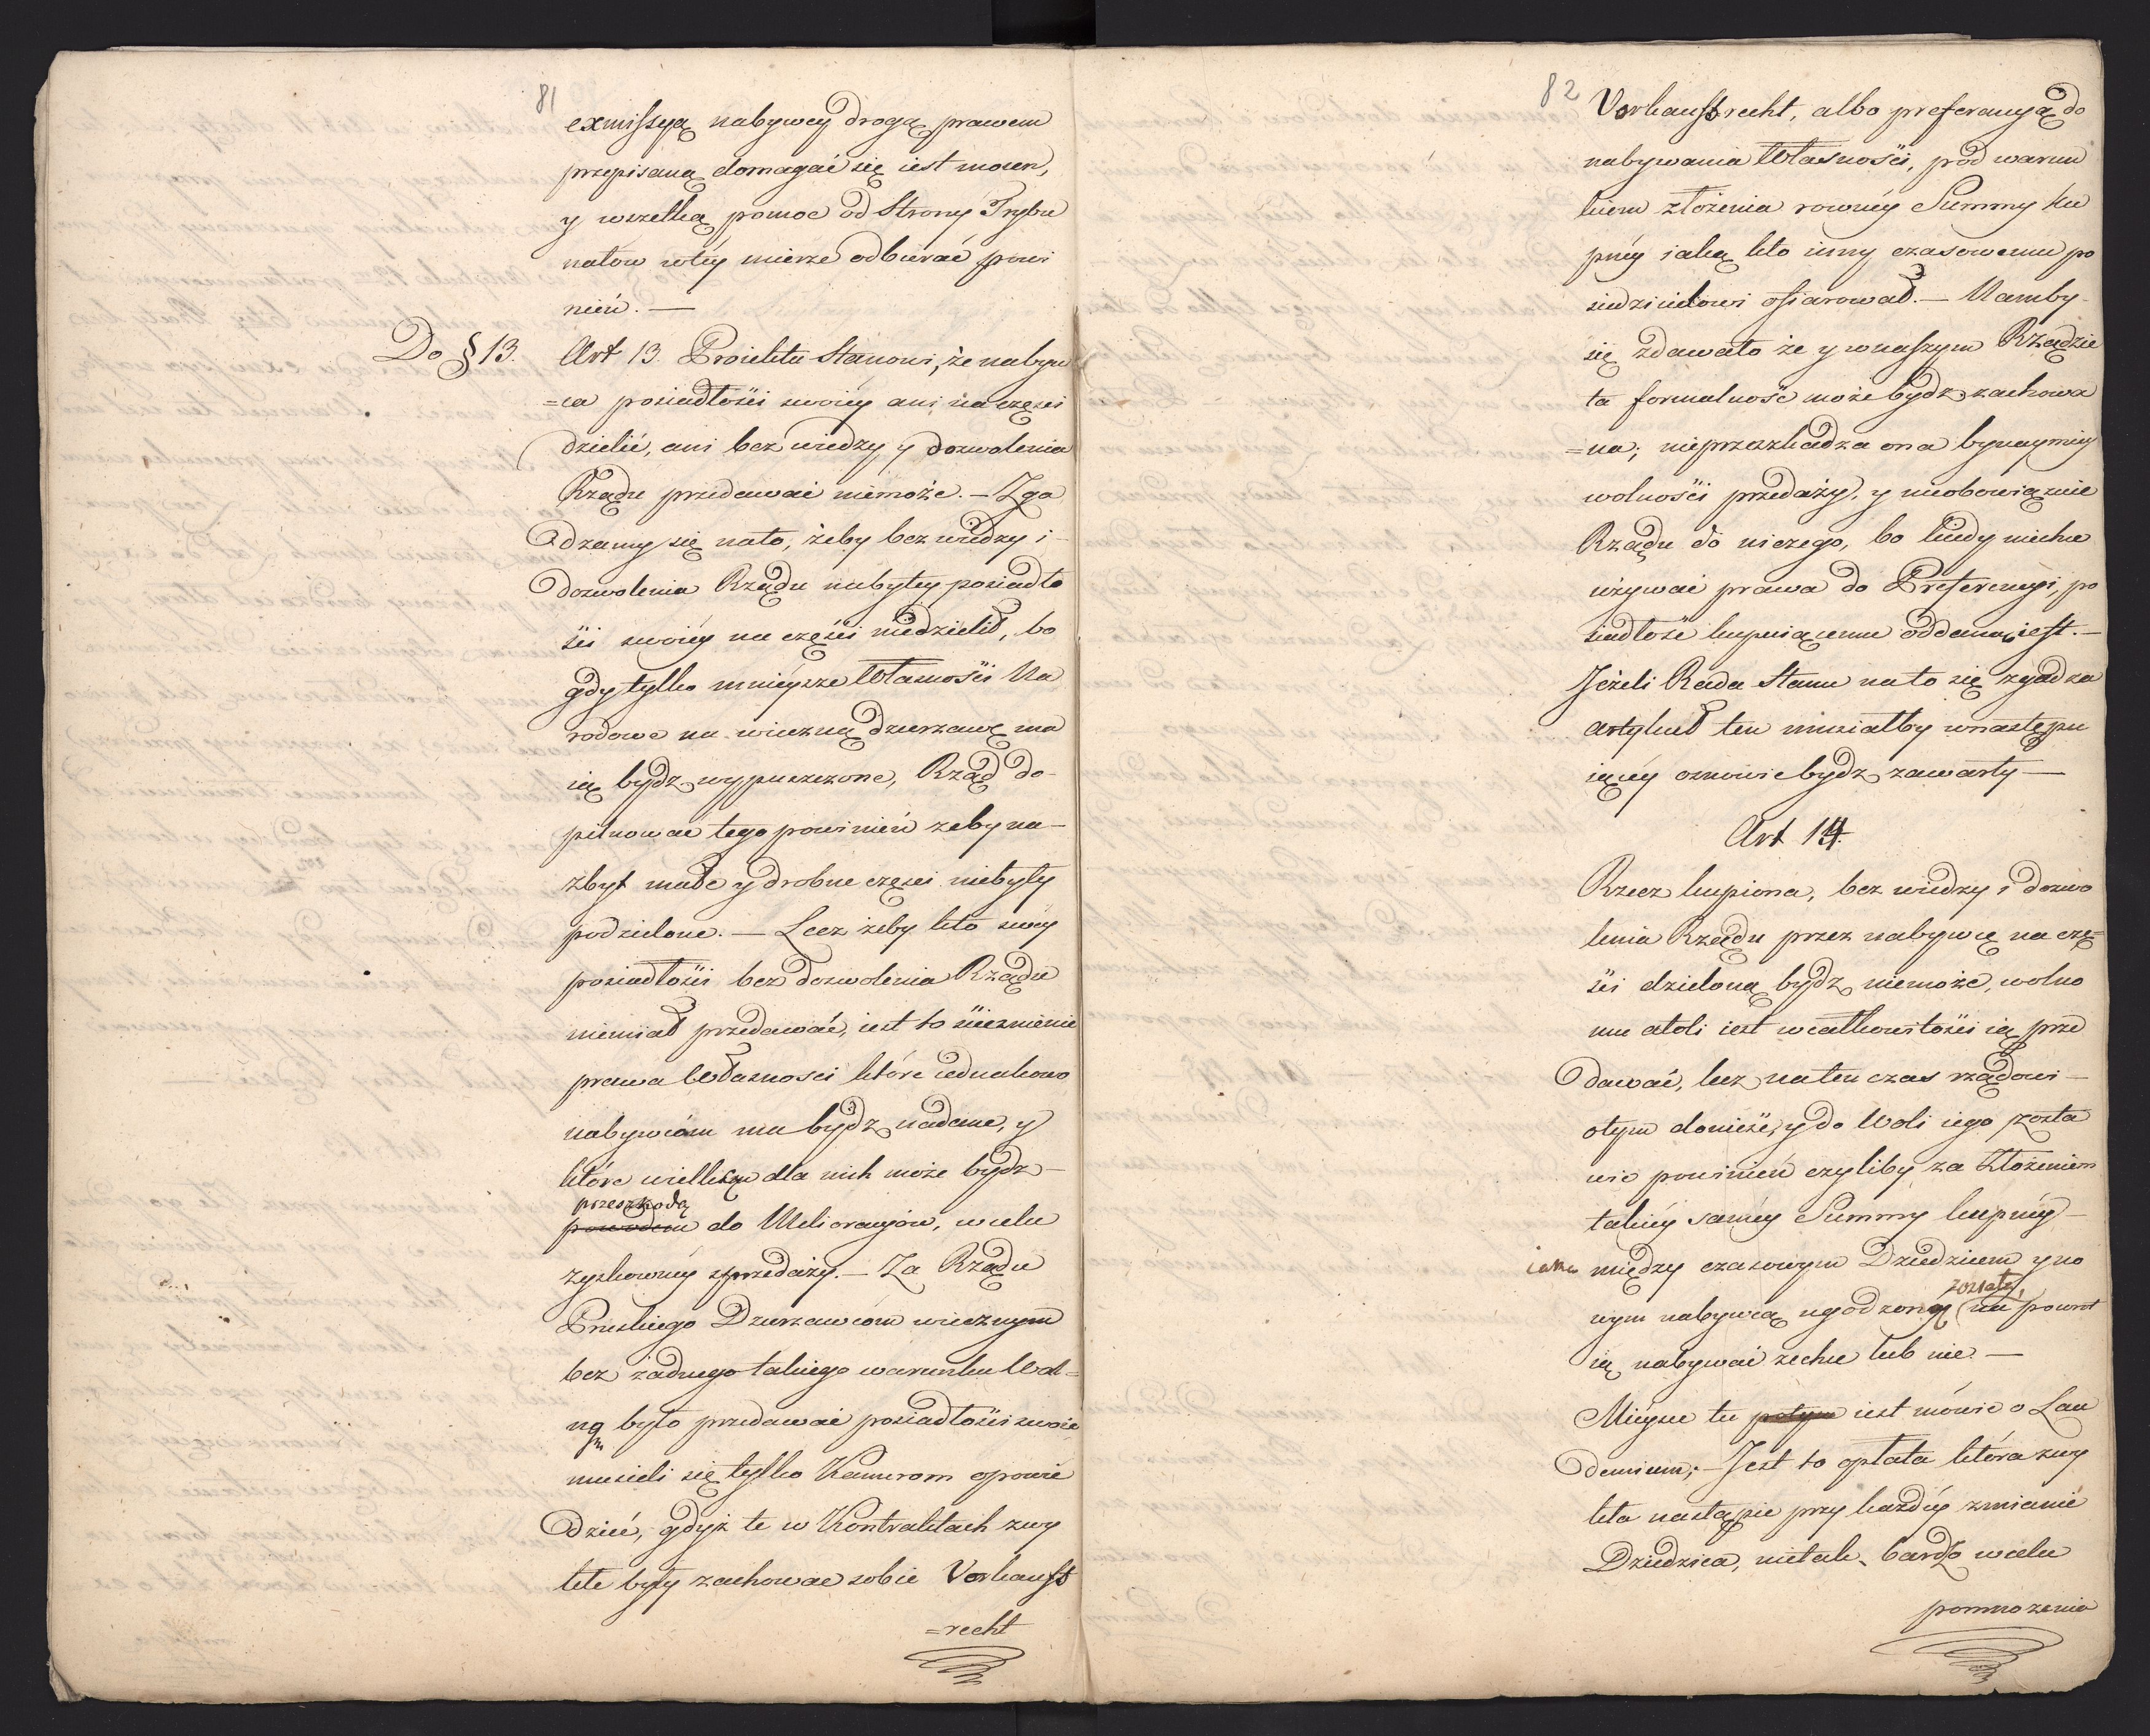 81
exmissyą nabywcy drogą prawem
przepisaną domagać się iest mocen,
y wszelką pomoc od Strony Trybu
nałow wtéy mierze odbierać powi
nień. —
Do § 13. Art 13. Proiektu Stanowi, że nabyw
=ca posiadłości swoiéy ani na częsci
dzielić, ani bez wiedzy y dozwolenia
Rządu przedawać niemoże. — Zga
dzamy się nato, żeby bez wiedzy i
dozwolenia Rządu nabytey posiadło
ści swoiéy na części niedzielił, bo
gdy tylko mnieysze Własności Na
rodowe na wieczną dzierzawę ma
ią bydz wypuszczone, Rząd do-
pilnowac tego powinień zeby na-
zbyt małe y drobne częsci niebyły
podzielone. — Lecz żeby kto swey
posiadłości bez dozwolenia Rządu
niemiał przedawać, iest to ścieśnienie
prawa Własnosci które iednakowo
nabywcóm ma bydz nadane, y
które wielką dla nich może bydz —
przeszkodą
powodem do Melioracyów, w celu
zyskownéy sprzedaży. — Za Rządu
Pruskiego Dzierzawcóm wiecznym
bez żadnego takiego warunku Wol=
no było przedawać posiadłości swoie
musieli się tylko Kamerom opowie
dzieć, gdyż te w Kontraktach zwy
kłe były zachowac sobie Vorkaufs
=recht
82
Vorkaufsrecht, albo preferencyą do
nabywania Własności, pod warun
kiem złożenia rownéy Summy Ku
pnéy iaką kto inny czasowemu po
siedzicielowi ofiarował. — Nam by
się zdawało że y wnaszym Rządzie
ta formalność może bydz zachowa
=na; nieprzeszkadza ona bynaymniey
wolności przedaży, y nieobowiązuie
Rządu do niczego, bo kiedy niechce
używać prawa do Preferencyi, po
siadłość kupuiącemu oddana iest. —
Jeżeli Rada Stanu na to się zgadza
artykuł ten musiałby wnastępu
iącéy osnowie bydz zawarty —
Art 14.
Rzecz kupiona, bez wiedzy i dozwo
lenia Rządu przez nabywcę na czę=
ści dzieloną bydz niemoże, wolno
mu atoli iest w całkowitości ią prze
dawać, lecz naten czas rządowi —
otym donieść, y do Woli iego zosta
wic powinień czyliby za Złożeniem
takiéy saméy Summy kupnéy —
iaka między czasowym Dziedzicem y no
została,
wym nabywcą ugodzoną na powrot
ią nabywać zechce lub nie. —
Mieysce tu potym iest mówic o Lau
demium; — Jest to opłata która zwy
kła nastąpic przy każdéy zmianie
Dziedzica, nietak bardzo w celu
pomnozenia